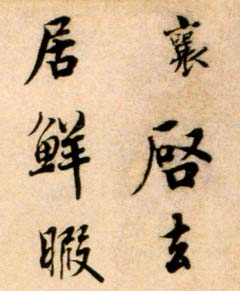 襄啓去
居鮮暇